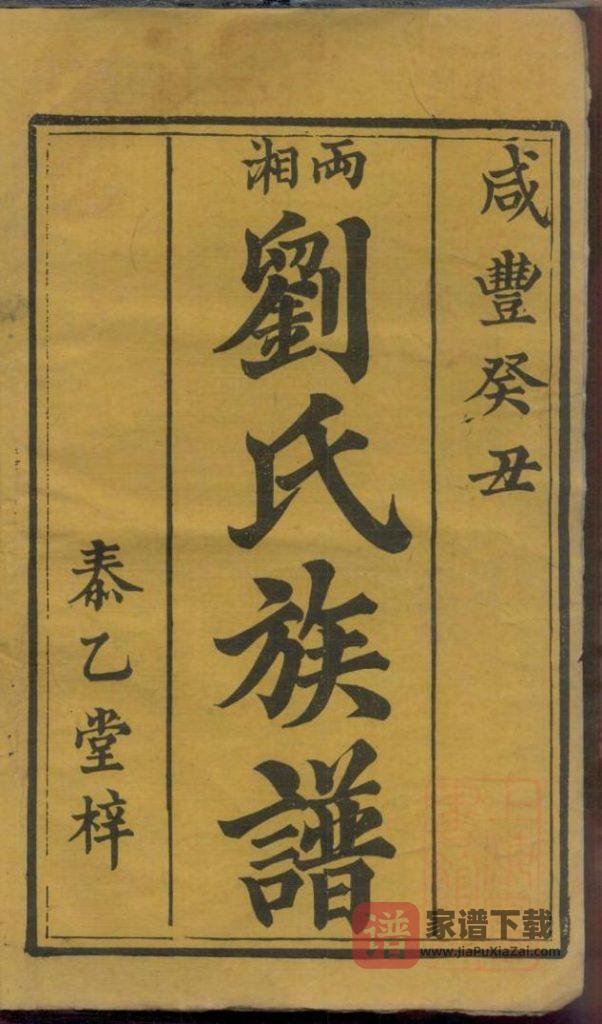 咸豐癸丑
両湘
劉氏族譜
泰乙堂梓
谱 家谱下载
www.jiaPuXiaZai.com